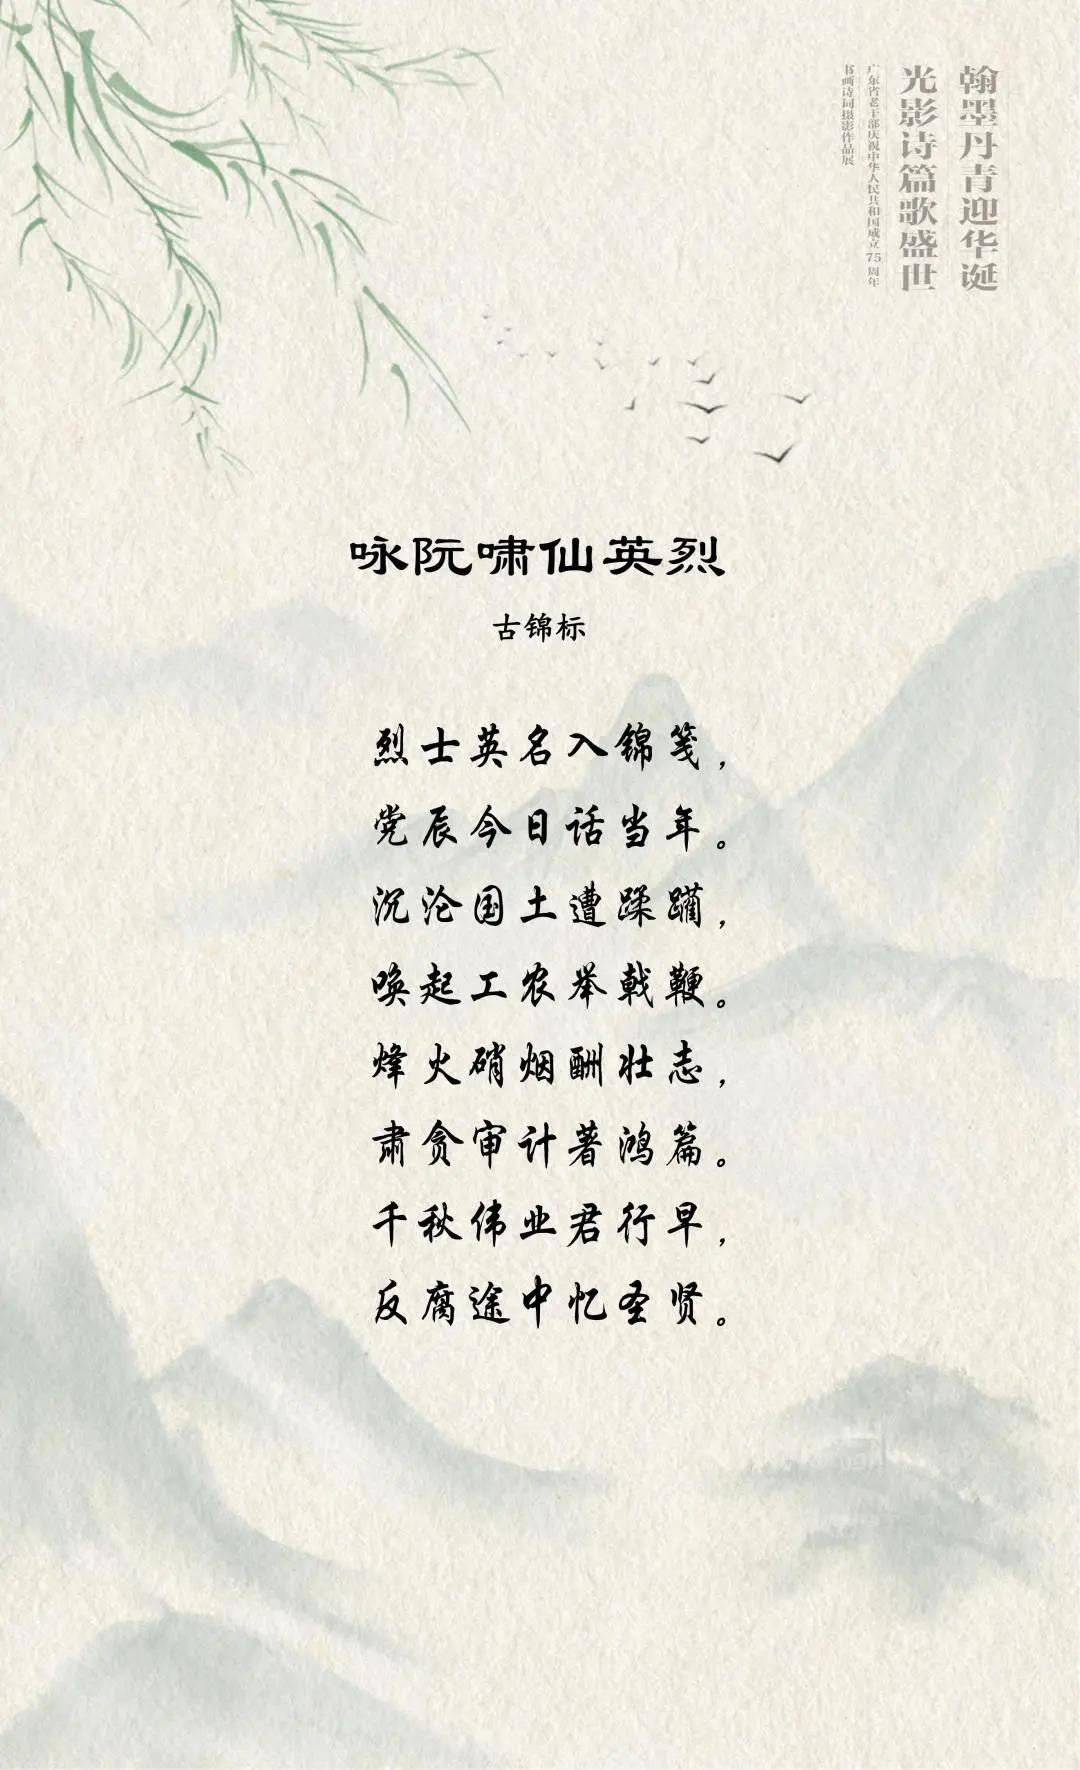 翰墨丹青迎华诞
光影诗篇歌盛世
广东省老干部庆祝中华人民共和国成立75周年
书画诗词摄影作品展
咏阮啸仙英烈
古锦标
烈士英名入锦笺，
党辰今日话当年。
沉沦国土遭蹂躏，
唤起工农举戟鞭。
烽火硝烟酬壮志，
肃贪审计著鸿篇。
千秋伟业君行早，
反腐途中忆圣贤。